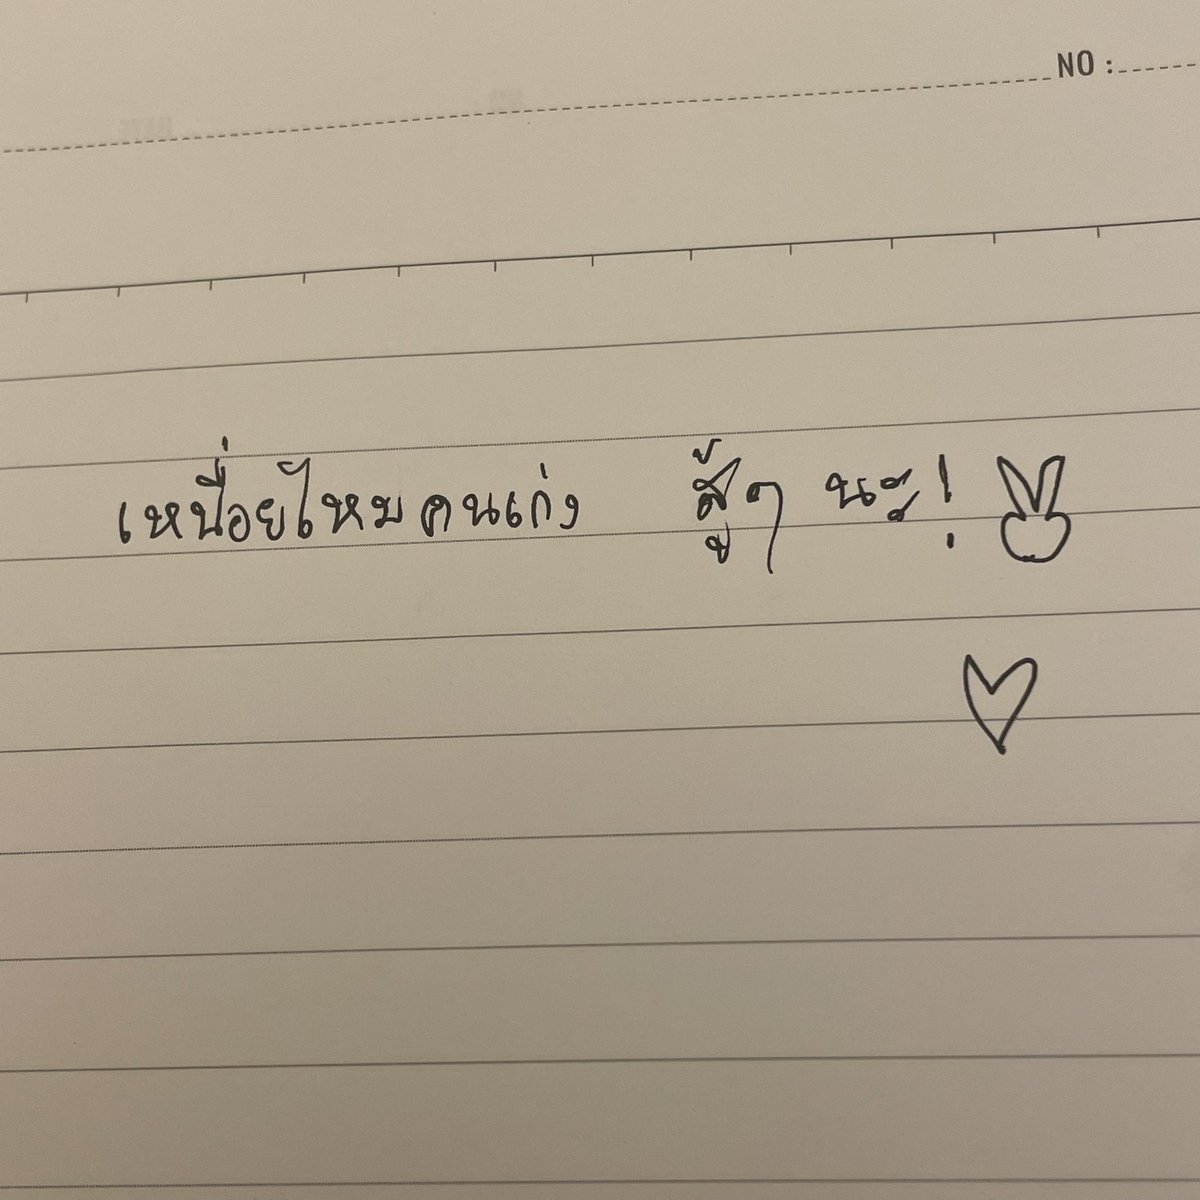 NO :
เหนื่อยไหมคนเก่ง สู้ๆ นะ!